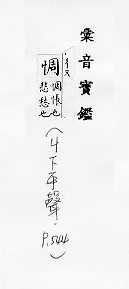 彙音寶鑑
惆
惆悵也
悲愁也
(4下平聲.
P.544)